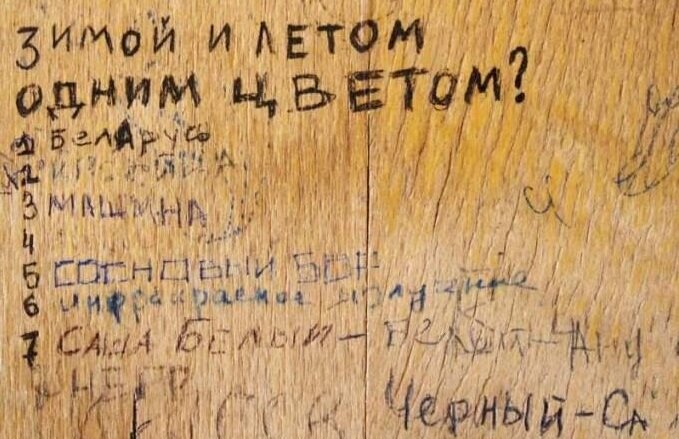 ЗИМОЙ И ЛЕТОМ
ОДНИМ ЦВЕТОМ?
1 БЕЛАРУСЬ
2
3 МАШИНА
4
5 СОСНОВЫЙ БОР
6 инфракрасное излучение
7 САША БЕЛЫЙ -
НЕГР
Черный - СА